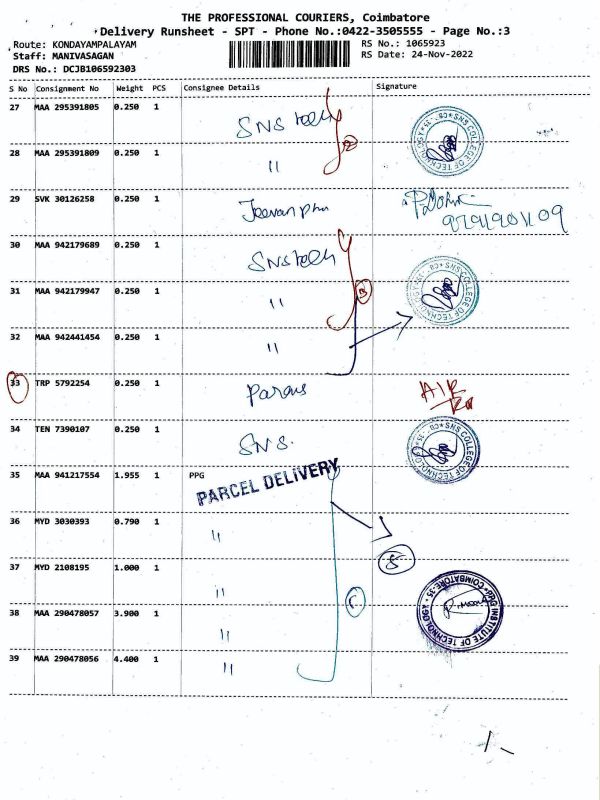 THE PROFESSIONAL COURIERS, Coimbatore
Delivery Runsheet - SPT - Phone No.:0422-3505555 - Page No.:3
Route: KONDAYAMPALAYAM RS No.: 1065923
Staff: MANIVASAGAN RS Date: 24-Nov-2022
DRS No.: DCJB106592303
S No Consignment No Weight PCS Consignee Details Signature
27 MAA 295391805 0.250 1 SNS
SNS COLLEGE OF TECHNOLOGY * CB - 35 *
28 MAA 295391809 0.250 1 "
29 SVK 30126258 0.250 1
30 MAA 942179689 0.250 1 SNS
31 MAA 942179947 0.250 1 "
SNS COLLEGE OF TECHNOLOGY * CB - 35 *
32 MAA 942441454 0.250 1 "
33 TRP 5792254 0.250 1
34 TEN 7390107 0.250 1 SNS.
SNS COLLEGE OF TECHNOLOGY * CB - 35 *
35 MAA 941217554 1.955 1 PPG
PARCEL DELIVERY
36 MYD 3030393 0.790 1 "
37 MYD 2108195 1.000 1 "
PPG INSTITUTE OF TECHNOLOGY * COIMBATORE-35 *
38 MAA 290478057 3.900 1 "
39 MAA 290478056 4.400 1 "